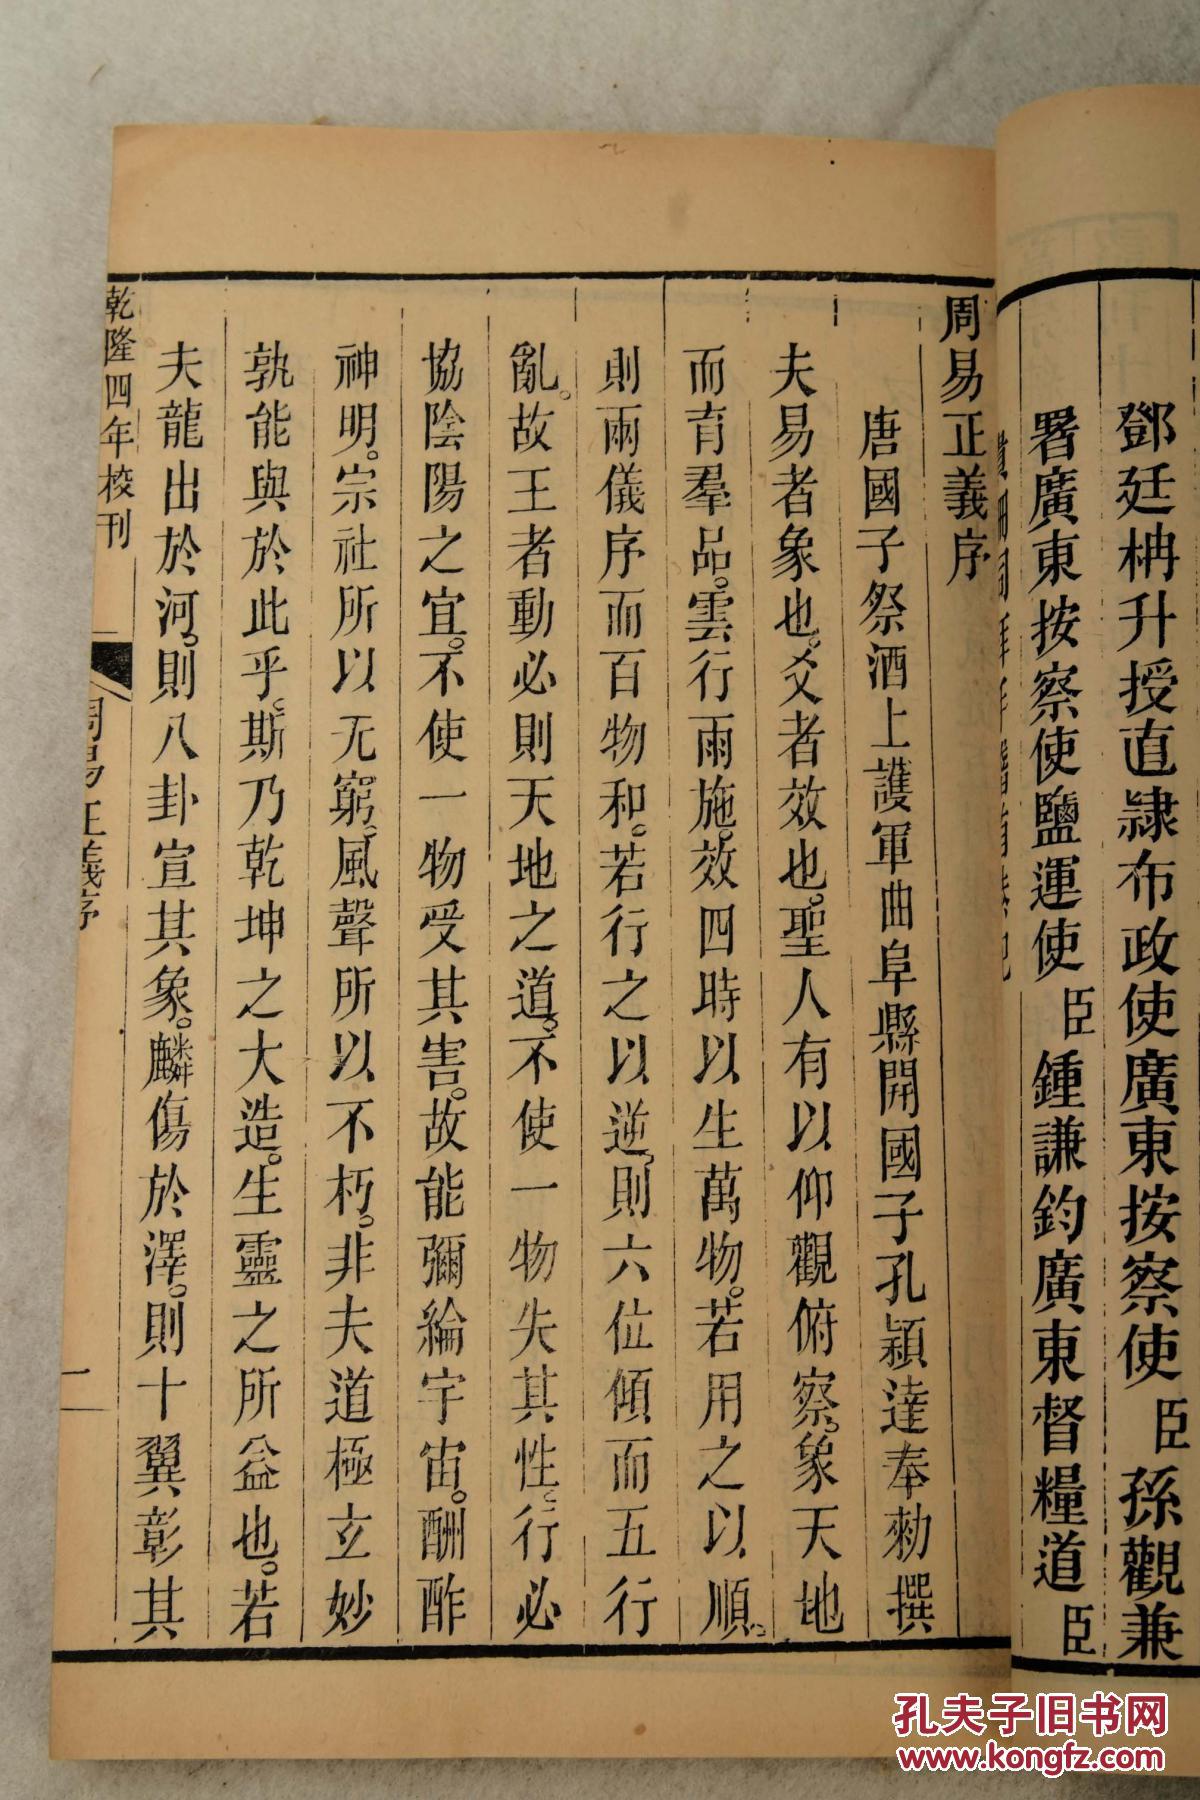 鄧廷枏升授直隸布政使廣東按察使臣孫觀兼
署廣東按察使鹽運使臣鍾謙鈞廣東督糧道臣
周易正義序
唐國子祭酒上護軍曲阜縣開國子孔穎達奉勑撰
夫易者象也。爻者效也。聖人有以仰觀俯察。象天地
而育羣品。雲行雨施。效四時以生萬物。若用之以順。
則兩儀序而百物和。若行之以逆。則六位傾而五行
亂。故王者動必則天地之道。不使一物失其性。行必
協陰陽之宜。不使一物受其害。故能彌綸宇宙。酬酢
神明。宗社所以无窮。風聲所以不朽。非夫道極玄妙
孰能與於此乎。斯乃乾坤之大造。生靈之所益也。若
夫龍出於河。則八卦宣其象。麟傷於澤。則十翼彰其
乾隆四年校刊
周易正義序
一
孔夫子旧书网
www.kongfz.com